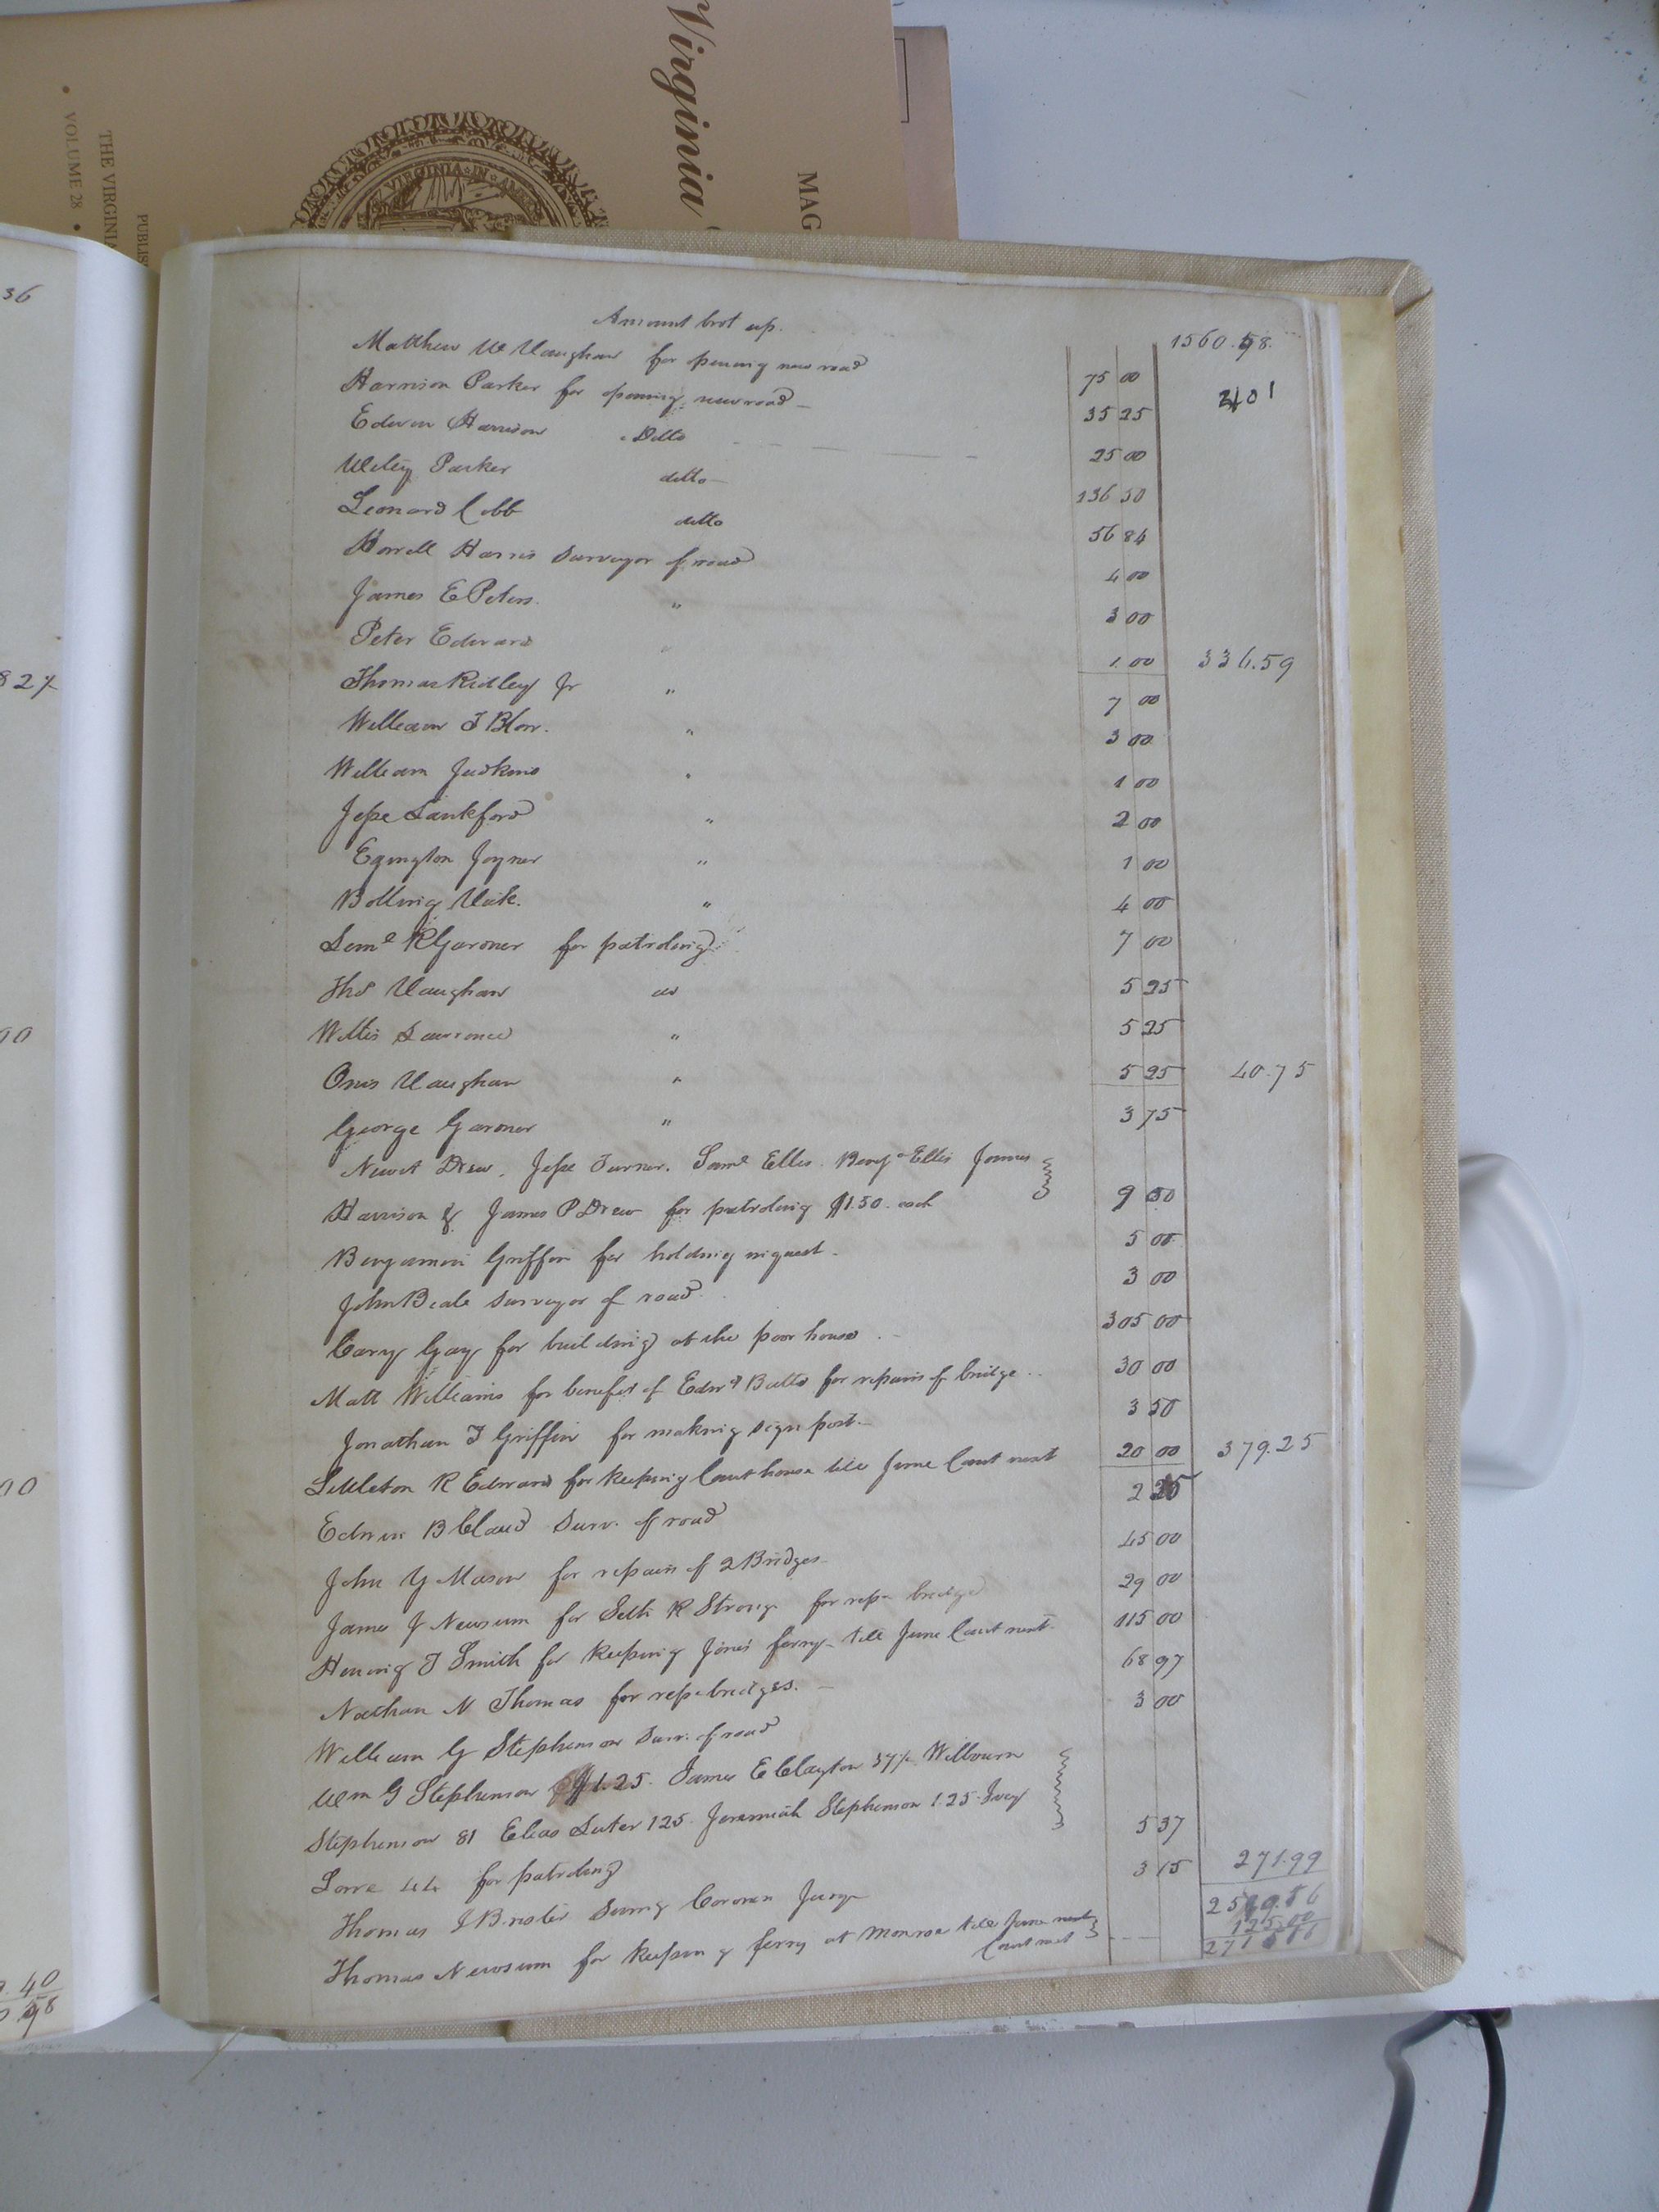 Virginia
MAG
THE VIRGINIA
VOLUME 28
PUBLIS
VIRGINIA IN
36
82½
00
00
40
98
Amount brot up. 1560.58.
Matthew W Vaughan for opening new road 75 00
Harrison Parker for opening new road 35 25
Edwin Harrison Ditto 25 00
Wiley Parker ditto 136 50
Leonard Cobb ditto 56 84
Howell Harris Surveyor of road 4 00
James E Peters. " 3 00
Peter Edwards " 1.00 336.59
Thomas Ridley Jr " 7 00
William T Blow. " 3 00
William Judkins " 1 00
Jesse Lankford " 2 00
Exington Joyner " 1 00
Bolling Vick. " 4 00
Leml R Gardner for patroling 7 00
Thos Vaughan do 5 25
Willis Lawrence " 5 25
Vaughan " 5 25 40.75
George Gardner " 3 75
Newit Drew. Jesse Turner. Saml Ellis. Benja Ellis James
Harrison & James P Drew for patroling $1.50 each 9 00
Benjamin Griffin for holding inquest. 5 00
John Beale Surveyor of road. 3 00
Cary Gay for building at the poor house 305 00
Matt Williams for benefit of Edwd Butts for repairs of bridge 30 00
Jonathan T Griffin for making sign post. 3 50
Littleton R Edwards for keeping Courthouse till June Court next 20 00 379.25
Edwin B Claud Surv. of road 2
John Y Mason for repairs of 2 Bridges 45 00
James J Newsum for Seth R Strong for repa bridge 29 00
Hening T Smith for keeping Jones ferry till June Court next. 115 00
Nathan N Thomas for repa bridges. 68 97
William G Stephenson Surv. of road 3 00
Wm G Stephenson $1.25. James E Clayton 37½ Wilbourn
Stephenson 81 Elias Luter 125. Jeremiah Stephenson 1.25. Ivey
44 for patroling 5 37
Thomas J Brister Sumg Coroners Jury 3 15 271.99
Thomas Newsum for keeping ferry at Monroe till June next
Court next